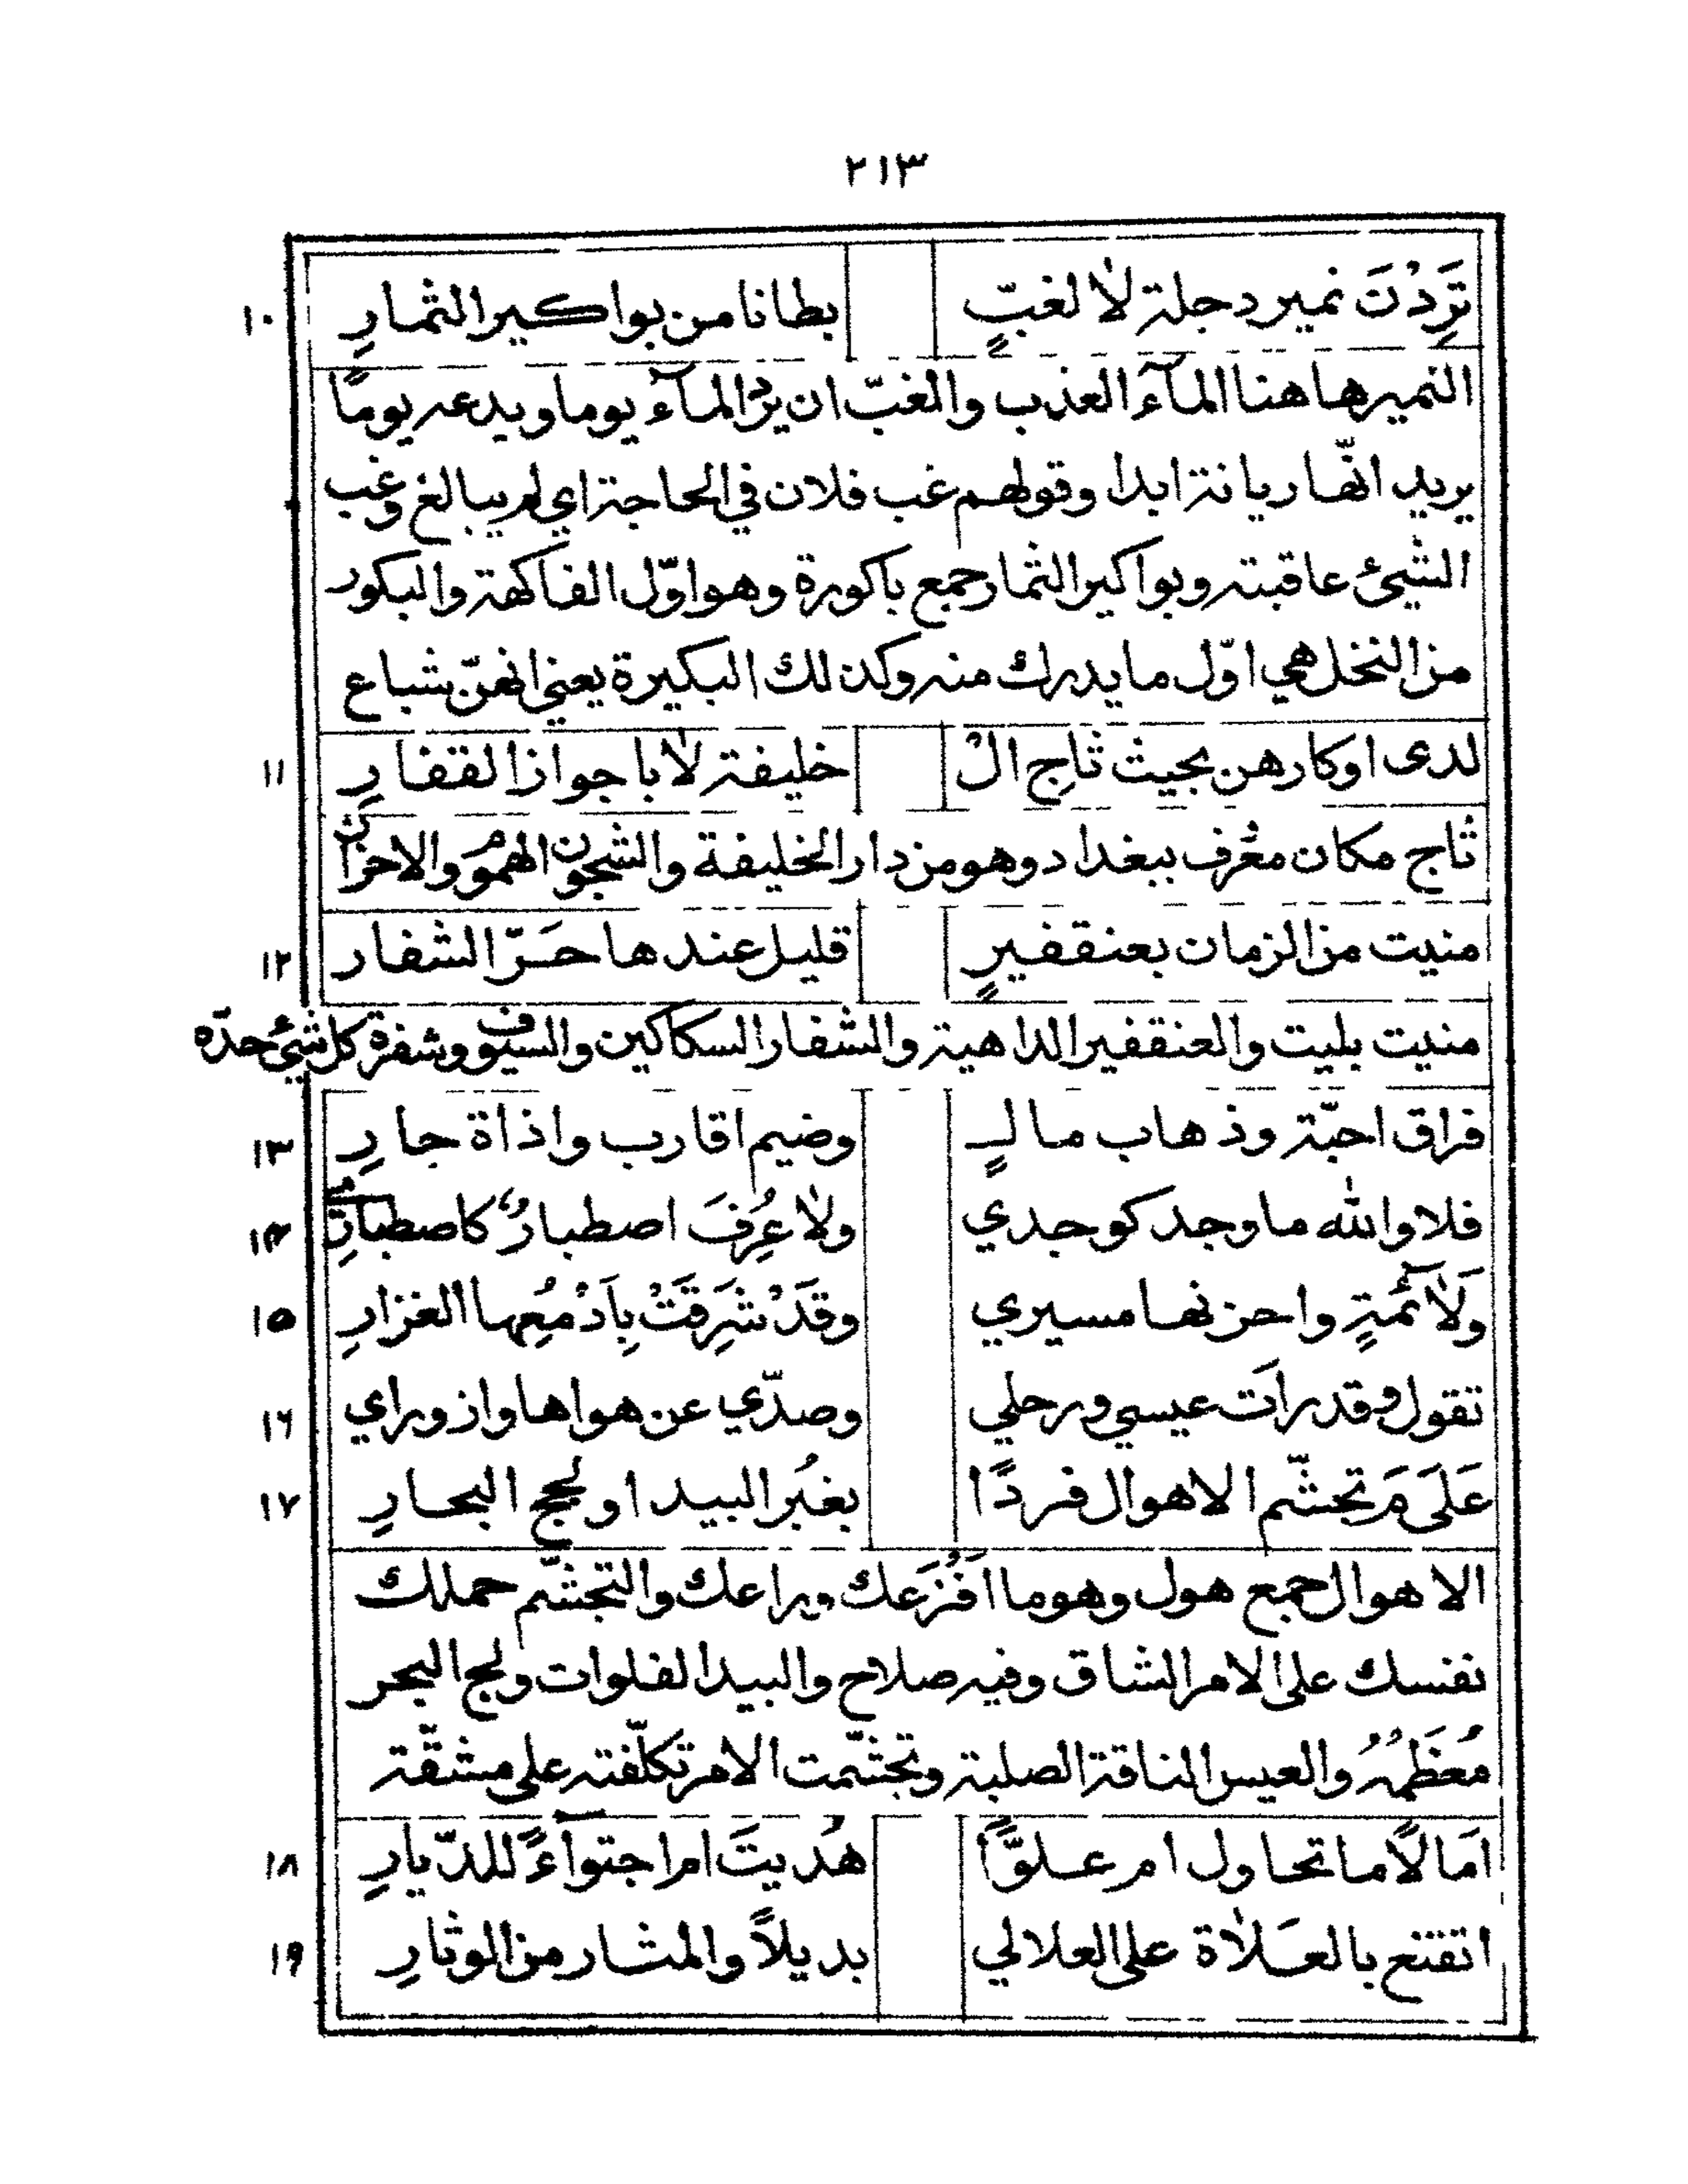 ٢١٣
تَرِدْنَ نمير دجلة لا لغبٍّ بطانا من بواكير الثمارِ ١٠
النمير هاهنا المآء العذب والغبّ ان يرد المآء يوما ويدعه يومًا
يريد انّها ريانة ابدا وقولهم غب فلان في الحاجة اي لم يبالغ وغب
الشيئ عاقبته وبواكير الثمار جمع باكورة وهو اوّل الفاكهة والبكور
من النخل هي اوّل ما يدرك منه وكذلك البكيرة يعني انهنّ شباع
لدى اوكارهن بحيث ثاجِ الْ خليفة لا باجواز القفارِ ١١
ثاج مكان معرف ببغداد وهو من دار الخليفة والشجون الهموم والاحزان
منيت من الزمان بعنقفيرٍ قليل عندها حَرّ الشفار ١٢
منيت بليت والعنقفير الداهية والشفار السكاكين والسيوف وشفرة كل شيئ حدّه
فراق احبّة وذهاب مالٍ وضيم اقارب واذاة جارِ ١٣
فلا والله ما وجد كوجدي ولا عُرِفَ اصطبارٌ كاصطبارِي ١٤
ولَآئمةٍ واحزنها مسيري وقَدْ شَرِقَتْ بِاَدْمُعِها الغزارِ ١٥
تقول وقد رات عيسي ورحلي وصدّي عن هواها وازوراي ١٦
عَلَى مَ تجشّم الاهوال فردًا بغُبر البيد او لجج البحارِ ١٧
الاهوال جمع هول وهو ما افزعك وراعك والتجشّم حملك
نفسك على الامر الشاق وفيه صلاح والبيد الفلوات ولج البحر
مُعْظَمُهُ والعيس الناقة الصلبة وتجشّمت الامر تكلّفته على مشقّة
اَمَالًا ما تحاول ام علوًّا هُديتَ ام اجتوآءً للدّيارِ ١٨
اتقنع بالعَلاة على العلالي بديلاً والمثار من الوثارِ ١٩